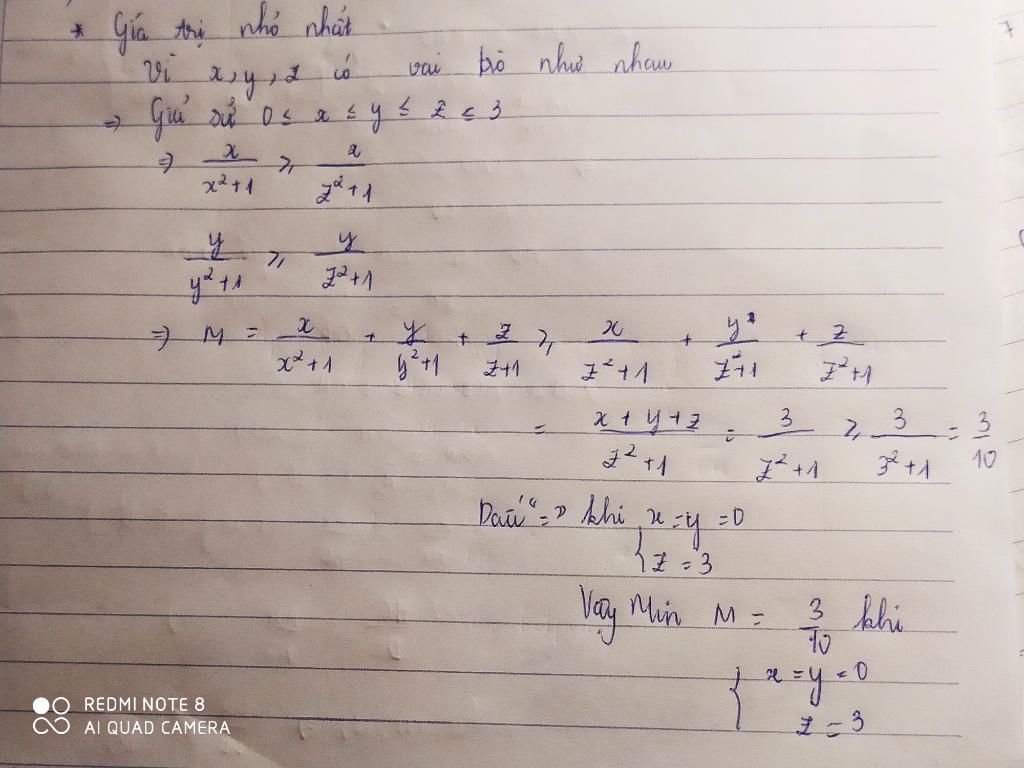 * Giá trị nhỏ nhất
Vì x, y, z có vai trò như nhau
=> Giả sử 0 ≤ x ≤ y ≤ z ≤ 3
=> x/(x²+1) ≥ x/(z²+1)
y/(y²+1) ≥ y/(z²+1)
=> M = x/(x²+1) + y/(y²+1) + z/(z+1) ≥ x/(z²+1) + y/(z²+1) + z/(z²+1)
= (x+y+z)/(z²+1) = 3/(z²+1) ≥ 3/(3²+1) = 3/10
Dấu "=" khi { x=y=0
z=3
Vậy Min M = 3/10 khi
{ x=y=0
z=3
REDMI NOTE 8
AI QUAD CAMERA